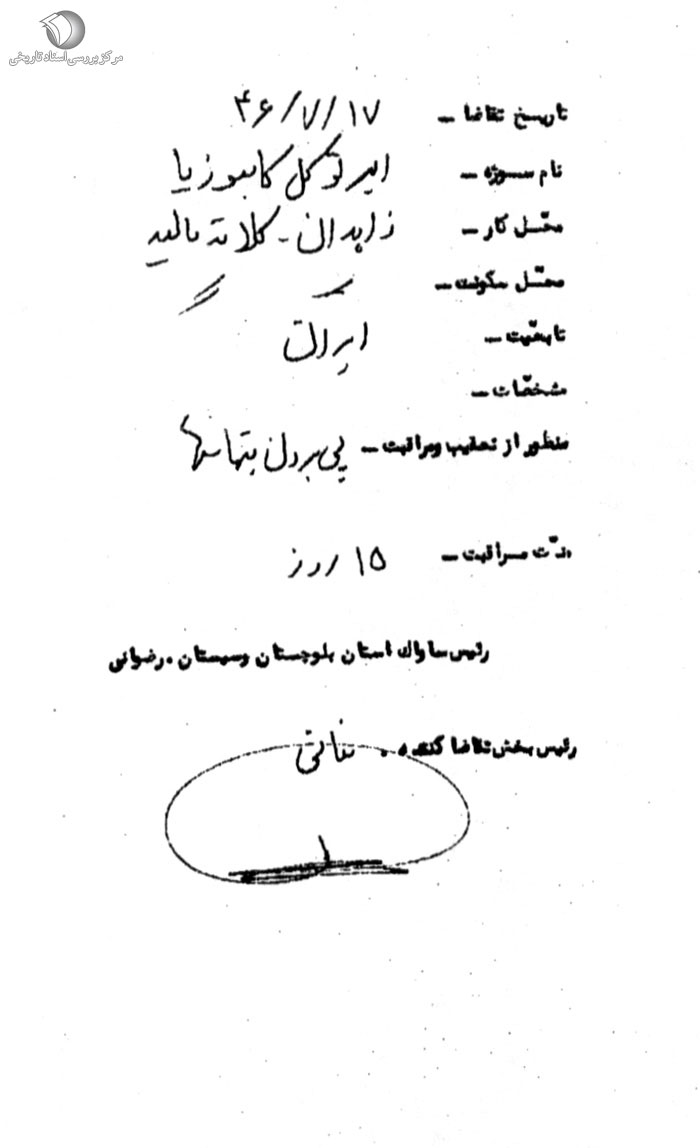 مرکز بررسی اسناد تاریخی
تاریخ تقاضا - ۴۶/۷/۱۷
نام سوژه - امیر توکل کامبوزیا
محل کار - زاهدان - کلاته
محل سکونت - " "
تابعیت - ایران
مشخصات -
منظور از تعقیب ومراقبت - پی بردن بتماسها
مدت مراقبت - ۱۵ روز
رئیس ساواک استان بلوچستان وسیستان . رضوانی
رئیس بخش تقاضا کننده .